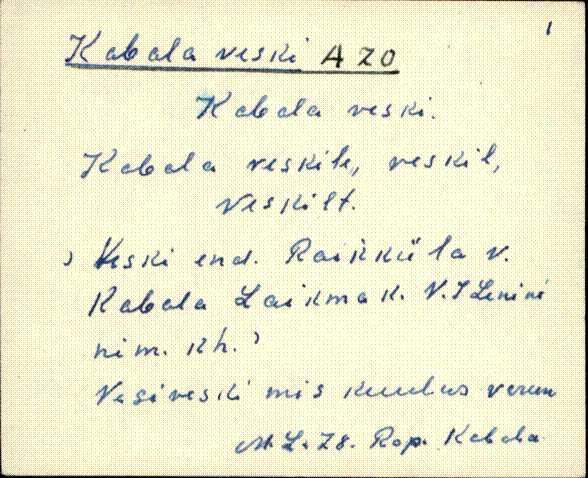 1
Kabala veski A 20
Kabala veski.
Kabala veskile, veskil,
veskilt.
› Veski end. Raikküla v.
Kabala Laikma k. V. I Lenini
nim. kh. ›
Vesiveski mis kuulus
M. L. 78. Rap. Kabala